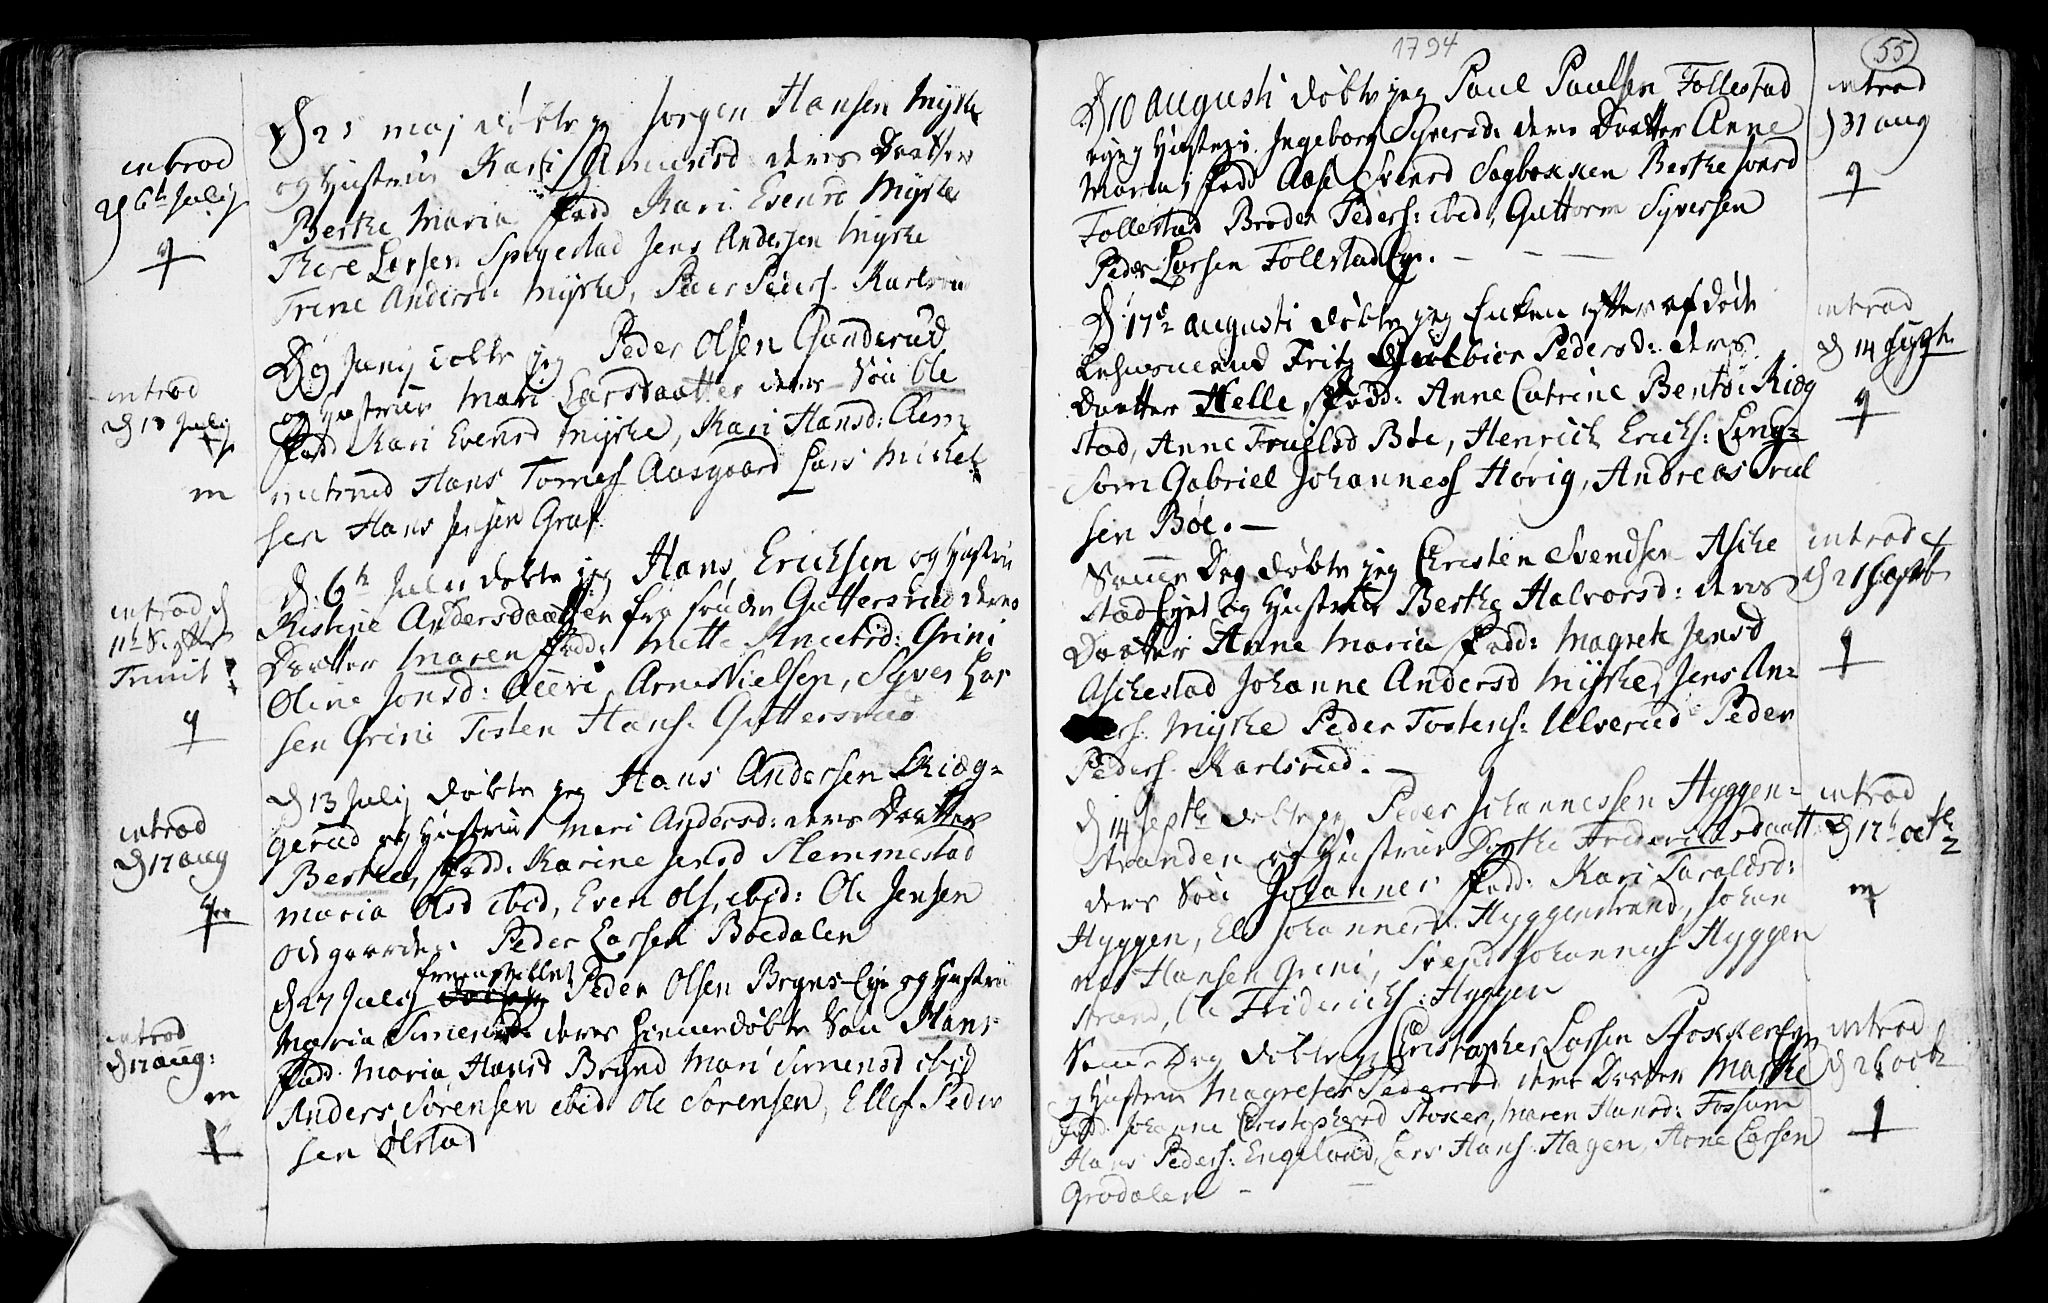 introd
d 6te Julij
q
D 25 maj döbte jeg Jorgen Hansen Myrke
og Hustrue Kari Amundsd deres Daatter
Berthe Maria Fadd Kari Evensd Myrke
There Larsen Spigestad Jens Andersen Myrke
Trine Andersd: Myrke, Peder Peders. Karlsrud
introd
d 13 Julij
m
D 9 Junij döbte jeg Peder Olsen Gunderud
og Hustrue Mari Larsdaatter deres Sön Ole
Fadd Kari Evensd Myrke, Kari Hansd: Clem
metsrud Hans Torness Aasgaard Lars Mickel
sen Hans Jensen Graf.
introd d
11te S: efter
Trinit
q
d. 6te Julii döbte jeg Hans Erichsen og Hustrue
Kistine Andersdaatter fra Guttersrud deres
Daatter Maren Fadd: Mette Knuetsd: Grini
Oline Jonsd: Arne Nielsen, Syver Lar
sen Grini Tosten Hans. Guttersrud
introd
d 17 aug
q
d 13 Julij döbte jeg Hans Andersen Skiøg-
gerud og Hustrue Mari Andersd: deres Daatter
Berthe, Fadd: Karine Jensd Slemmestad
Maria Olsd ibid, Even Ols, ibid: Ole Jensen
Odgaarden Peder Larsen Bøedalen
introd
d 17 aug:
m
fremstillet
d 27 Julij Peder Olsen Bryns-Eje og Hustrue
Maria Simensd: deres hiemmedöbte Sön Hans
Fadd. Maria Hansd Brynd Mari Simensd ibid
Anders Sörensen ibid Ole Sörensen, Ellef Peder
sen Ölstad
1794
55
introd
d 31 aug
q
D 10 Augusti döbte jeg Paul Paulsen Follestad
og Hustrue Ingeborg Syversd: deres Daatter Anne
Maria, Fadd Aase Svensd Sogbakken Berthe Ivarsd
Follestad Broder Peders: ibid, Guttorm Syversen
Peder Larsen Follstad Eje. —
introd
d 14 Septr
q
D: 17de Augusti döbte jeg Enken efter afdöde
Fritz Gulbior Pedersd: deres
Daatter Helle, Fadd: Anne Catrine Bentsd: Kiøg
stad, Anne Truelsd Böe, Henrich Erichs: Ling-
som Gabriel Johanness Hörig, Andreas Truel
sen Böe. —
introd
d 21 Septb
q
Samme Dag döbte jeg Christen Svendsen Aske
stad Eyet og Hustrue Berthe Halvorsd: deres
Daatter Anne Maria Fadd: Magrete Jensd
Askestad Johanne Andersd Myrke, Jens An-
ders. Myrke Peder Tostens: Ulverud Peder
Peders. Karlsrud. —
introd
d 12te octbr
m
d 14 Septbr döbte jeg Peder Johannessen Hyggen-
Stranden og Hustrue Dorthe Frederichsdaatt
deres Sön Johannes Fadd: Kari Taraldsd:
Hyggen, Eli Johannesd. Hyggenstrand, Johan
nes Hansen Grini, Svend Johanness Hyggen
strand, Ole Friderichs: Hyggen
introd
d 26 octb
q
Samme Dag döbte jeg Christopher Larsen Stokker Eje
og Hustrue Magrethe Pedersd deres Daatter Marthe
Fadd: Johanne Christophersd Stoker, Maren Hansd: Fossum
Hans Peders: Engelsrud, Lars Hans. Hagen, Arne Larsen
Grodalen —